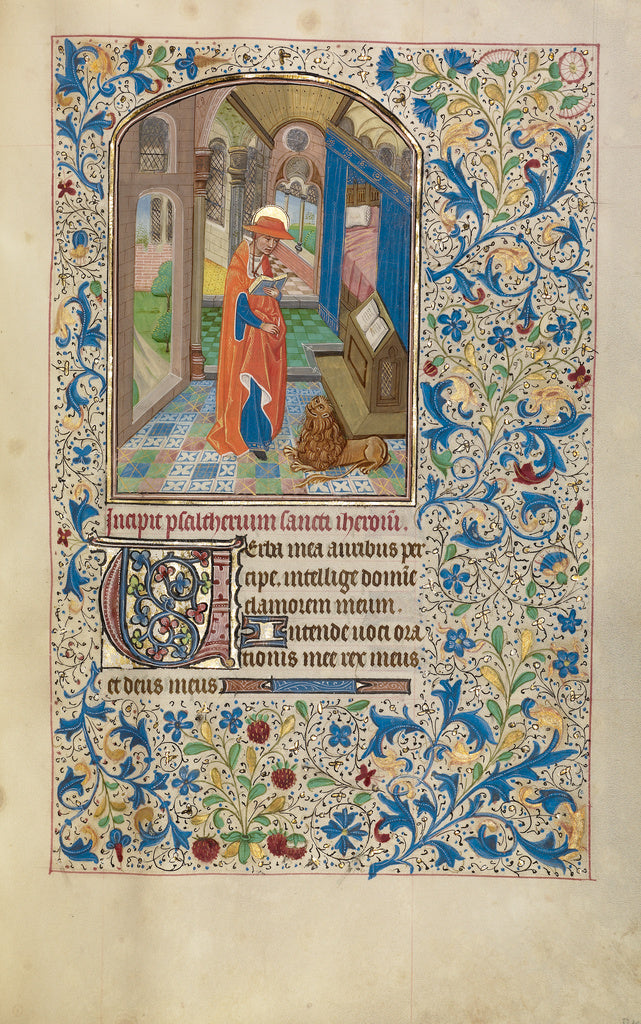 Incipit psaltherium sancti iheronī.
Verba mea auribus per
cipe. intellige domīe
clamorem meum.
Intende uoci ora
tionis mee rex meus
et deus meus